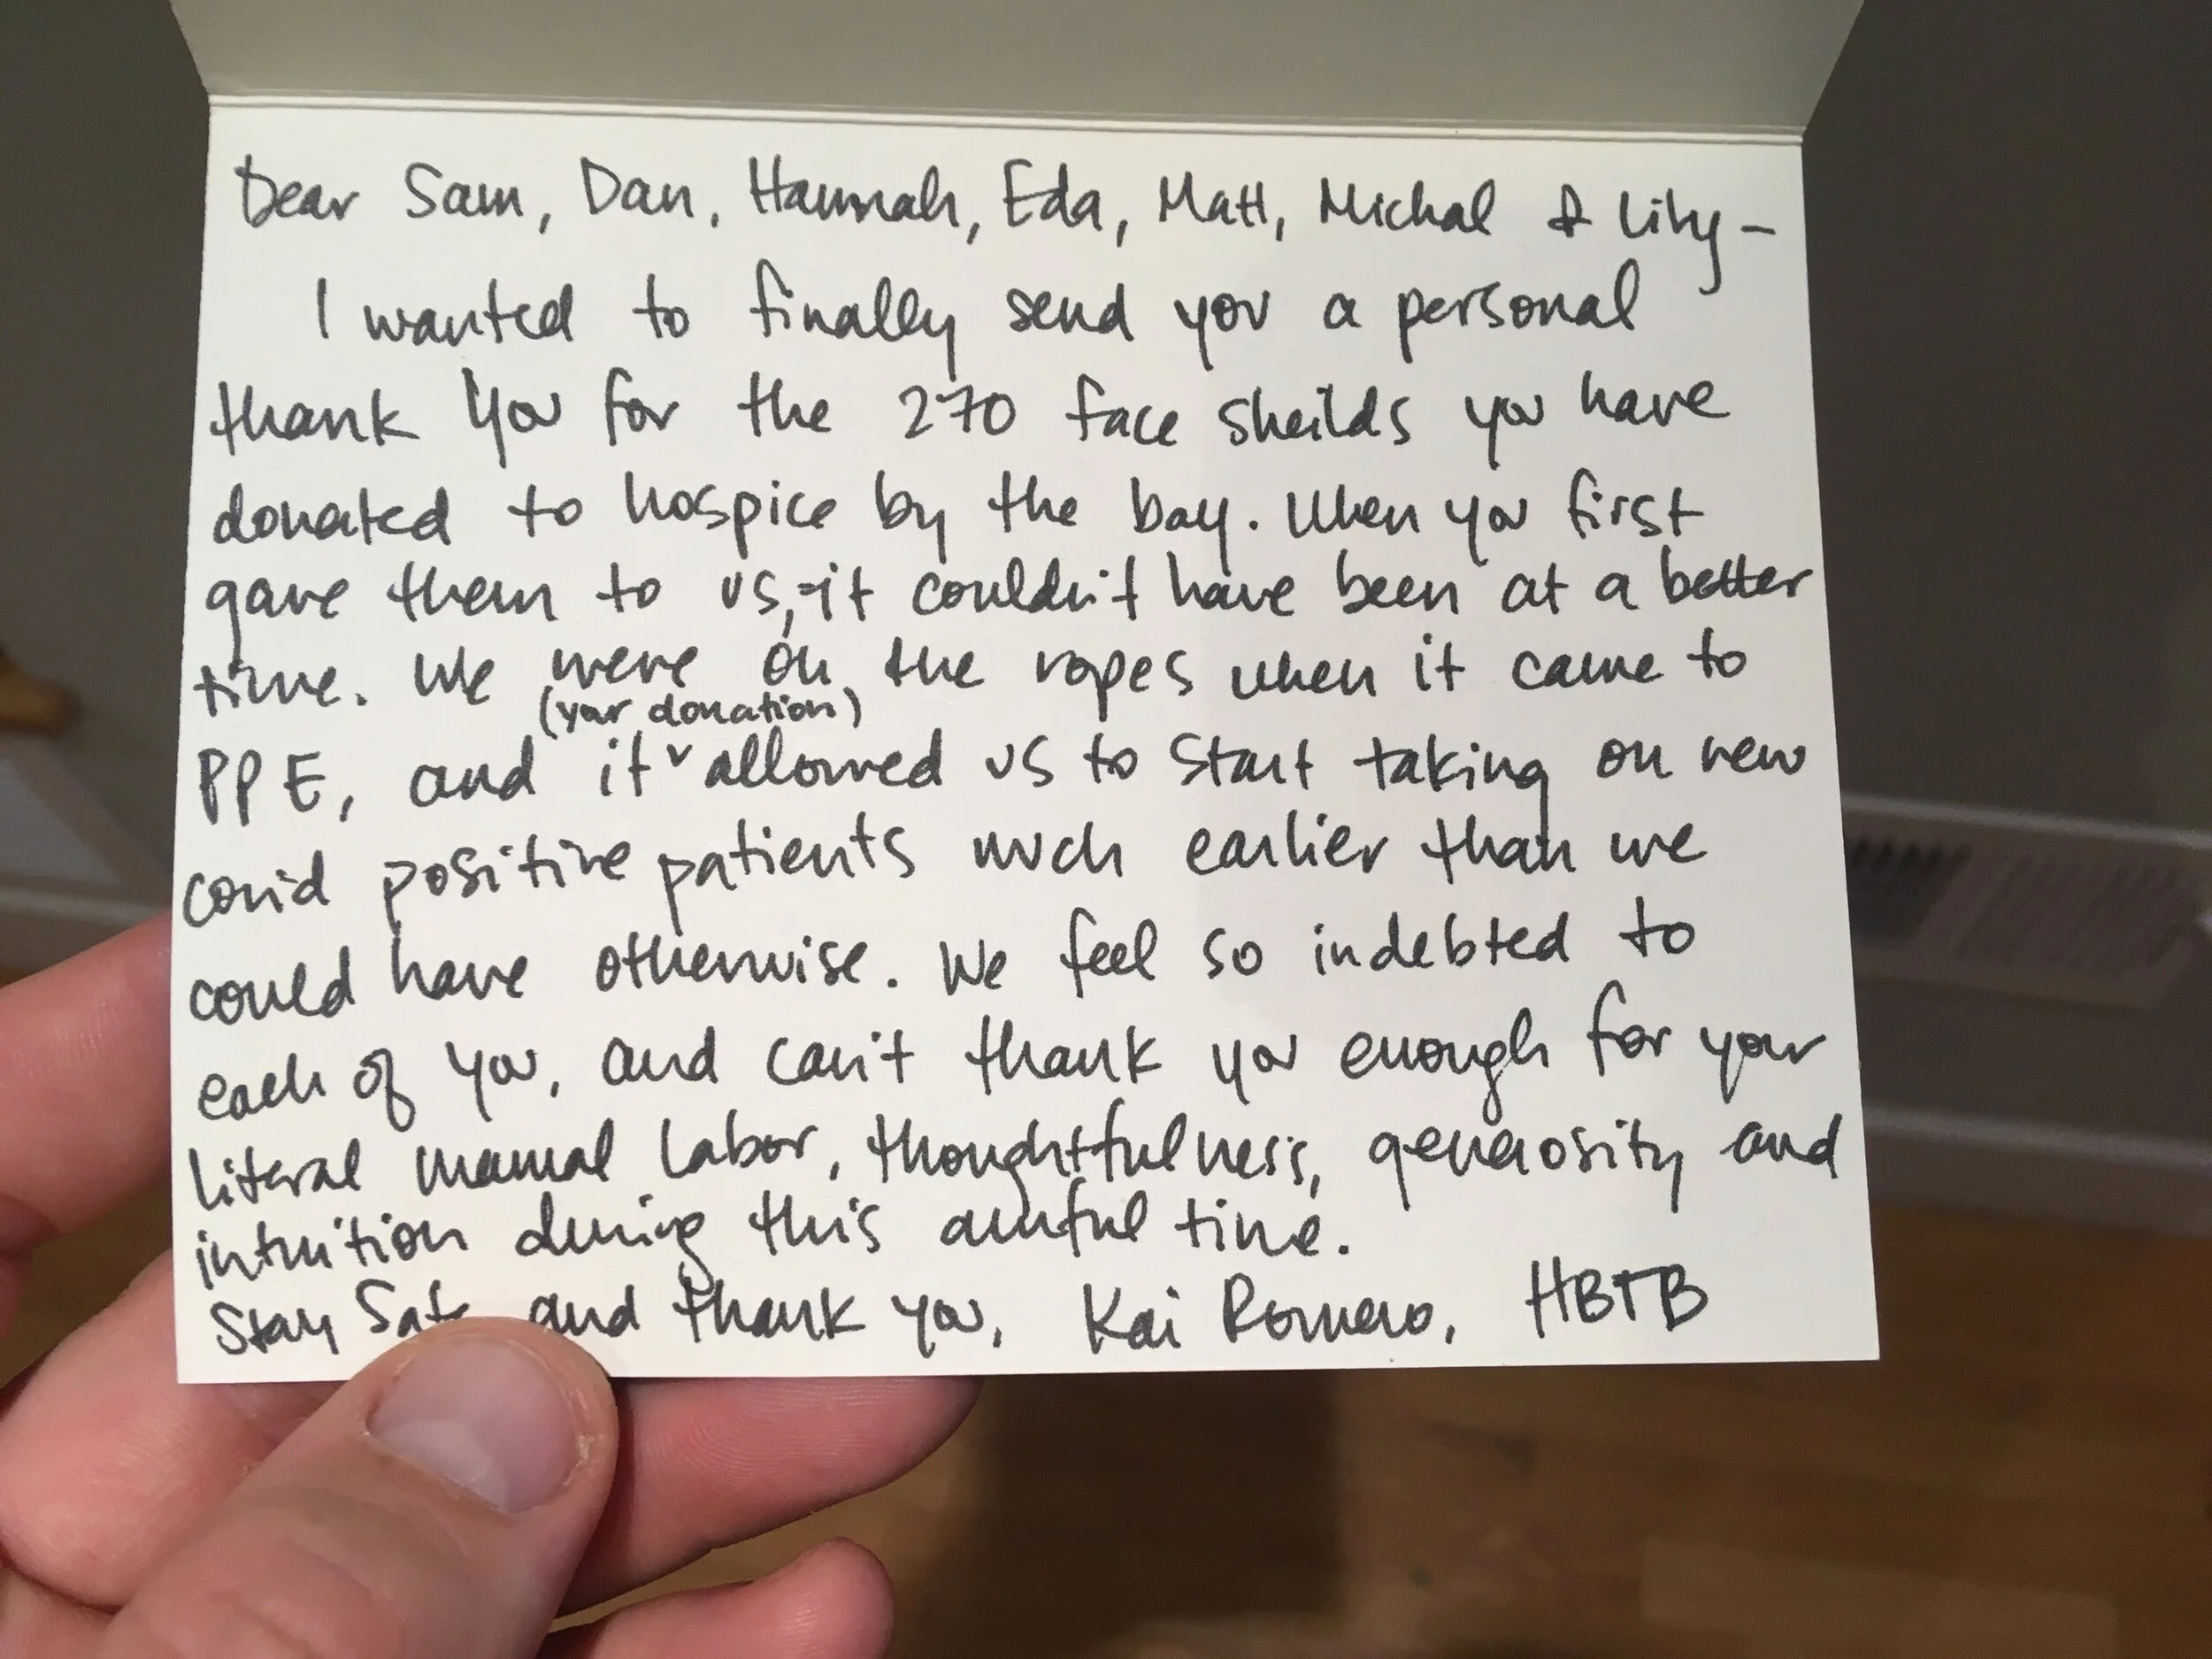 Dear Sam, Dan, Hannah, Eda, Matt, Michal & Lily –
I wanted to finally send you a personal
thank you for the 270 face sheilds you have
donated to hospice by the bay. When you first
gave them to us, it couldn't have been at a better
time. We were on the ropes when it came to
(your donation)
PPE, and it allowed us to start taking on new
covid positive patients much earlier than we
could have otherwise. We feel so indebted to
each of you, and can't thank you enough for your
literal manual labor, thoughtfulness, generosity and
intuition during this awful time.
Stay Safe and thank you, Kai Romero, HBTB